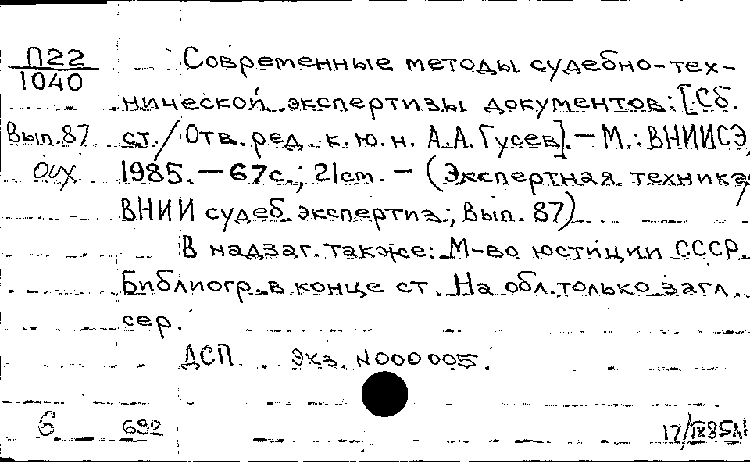 П22
1040
Вып. 87
Современные методы судебно-тех-
нической экспертизы документов: [Сб.
ст. / Отв. ред. к. ю. н. А.А. Гусев]. — М.: ВНИИСЭ,
1985. — 67 с.; 21 cm. — (Экспертная техника /
ВНИИ судеб. экспертиз; Вып. 87)
В надзаг. также: М-во юстиции СССР.
Библиогр. в конце ст. На обл. только загл.
сер.
ДСП. Экз. N000005.
6 692